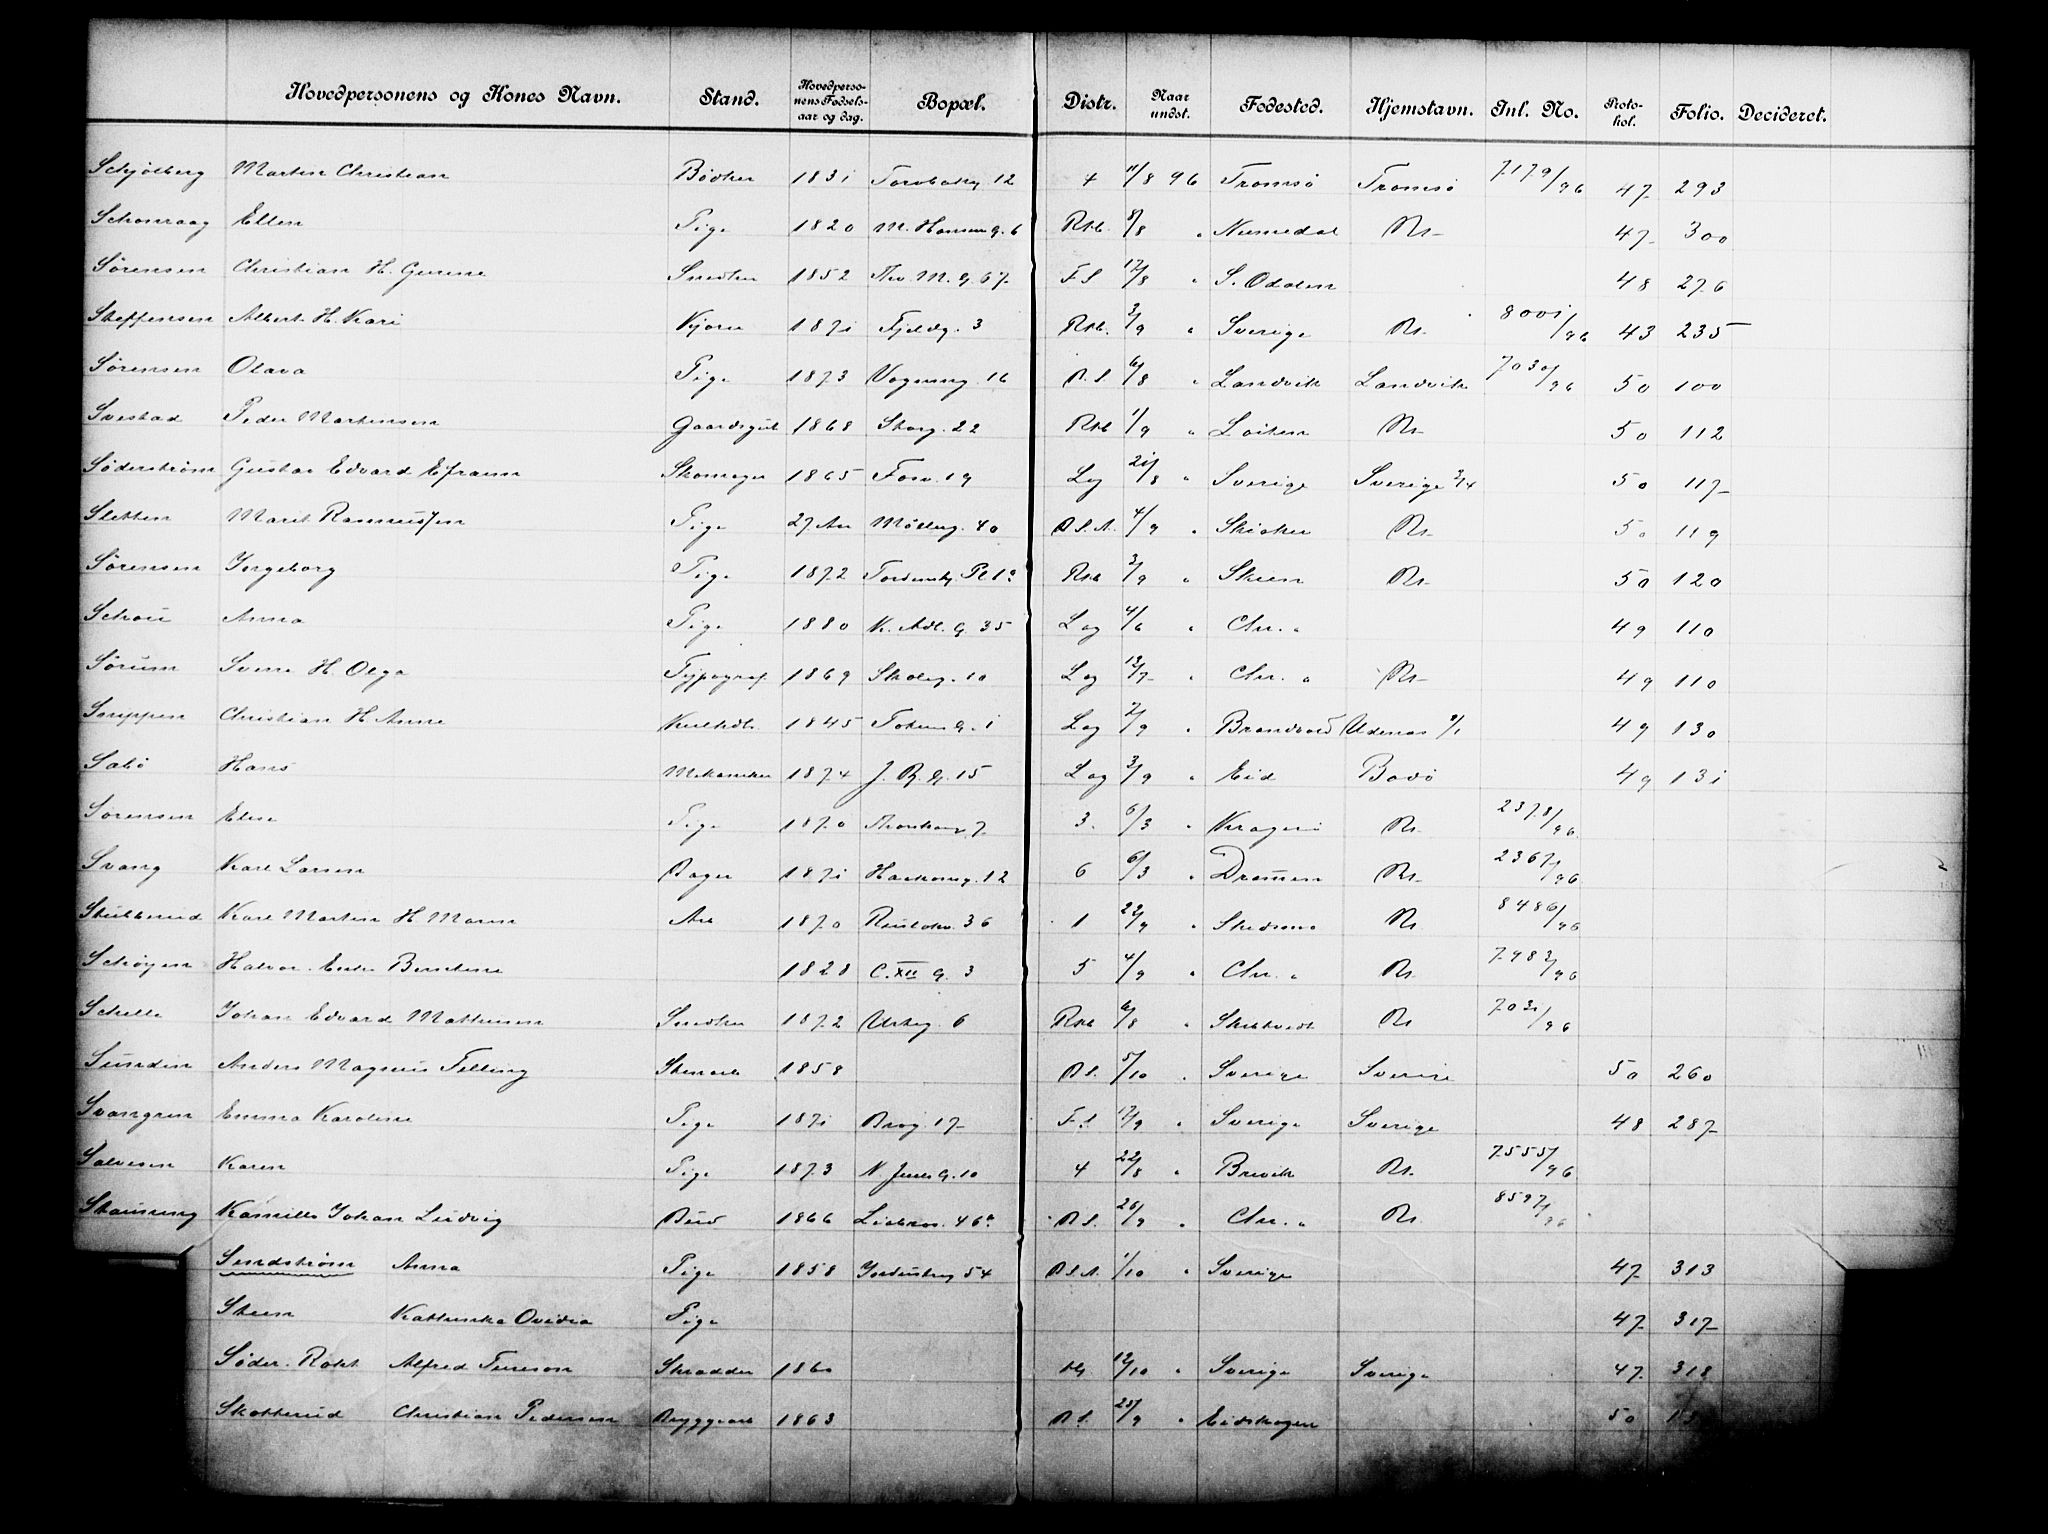 Hovedpersonens og Kones Navn. Stand. Hovedpersonens Fødselsaar og dag. Bopæl. Distr. Naar undst. Fødested. Hjemstavn. Inl. No. Protokol. Folio. Decideret.
Schjølberg Martin Christian Bødker 1831 12 4 11/8 96 Tromsø Tromsø 7179/96 47 293
Schonraag Ellen Pige 1820 M. Hansens g. 6 Rkb. 8/8 " Numedal Rs 47 300
Sørensen Christian H. Gurine Snedker 1852 Thv. M. g. 67 F.S 12/8 " S. Odalen 48 276
Steffensen Albert H. Kari Kjører 1871 Fjeldg. 3 Rkb. 3/9 " Sverige Rs 8001/96 43 235
Sørensen Olava Pige 1873 Vognmg. 16 B.S. 6/8 " Landvik Landvik 7030/96 50 100
Svestad Peder Martinsen Gaardsgut 1868 Storg. 22 Rkb 1/9 " Løiten Rs 50 112
Søderstrøm Gustav Edvard Efraim Skomager 1865 Fosv. 19 Lg 21/8 " Sverige Sverige 3/4 50 117
Sletten Marit Rasmussen Pige 27 Aar Møllerg. 40 B.S.A. 4/9 " Skiaker Rs 50 119
Sørensen Ingeborg Pige 1872 Tordensk. Pl 1a Rkb 3/9 " Skien Rs 50 120
Schou Anna Pige 1880 N. Adl. G. 35 Lag 4/6 " Chr. a 49 110
Sørum Sverre H. Olga Typograf 1869 Skoleg. 10 Lag 13/7 " Chr. a Rs 49 110
Christian H Anne 1845 G. 1 Lag 2/9 " Brandvold Udenæs 9/1 49 130
Sabø Hans Mekaniker 1874 J. B. G. 15 Lag 3/9 " Eid Bovø 49 131
Sørensen Elise Pige 1870 7 3. 6/3 " Kragerø Rs 2378/96
Svang Karl Larsen Bager 1871 Haakonsg. 12 6 6/3 " Drammen Rs 2367/96
Stubberud Karl Martin H Marie Arb 1870 36 1 22/9 " Skedsmo Rs 8486/96
Schøyen Halvor. Enke Berntine 1828 C. XII G. 3 5 4/9 " Chr. a Rs 7983/96
Schelle Johan Edvard Mathiesen Snedker 1872 Urteg. 6 Rkb 6/8 " Skibtvedt Rs 7031/96
Sundin Anders Magnus Felling Stenarb 1858 B.S. 5/10 " Sverige Sverige 50 260
Svangren Emma Karoline Pige 1871 Brog. 17 F.S 12/9 " Sverige Sverige 48 287
Salvesen Karen Pige 1873 N. Juels G. 10 4 22/8 " Brevik Rs 7555/96
Kamillo Johan Ludvig Bud 1866 46a B.S. 26/9 " Chr. a Rs 8597/96
Sundstrøm Anna Pige 1858 54 B.S.A. 1/10 " Sverige 47 313
Steen Kathinka Ovidia Pige 47 317
Søder. Rokt Alfred Tureson Skrædder 1860 12/10 " Sverige Sverige 47 318
Skotterud Christian Pedersen Bryggearb 1863 B.S. 25/9 " Eidskogen 50